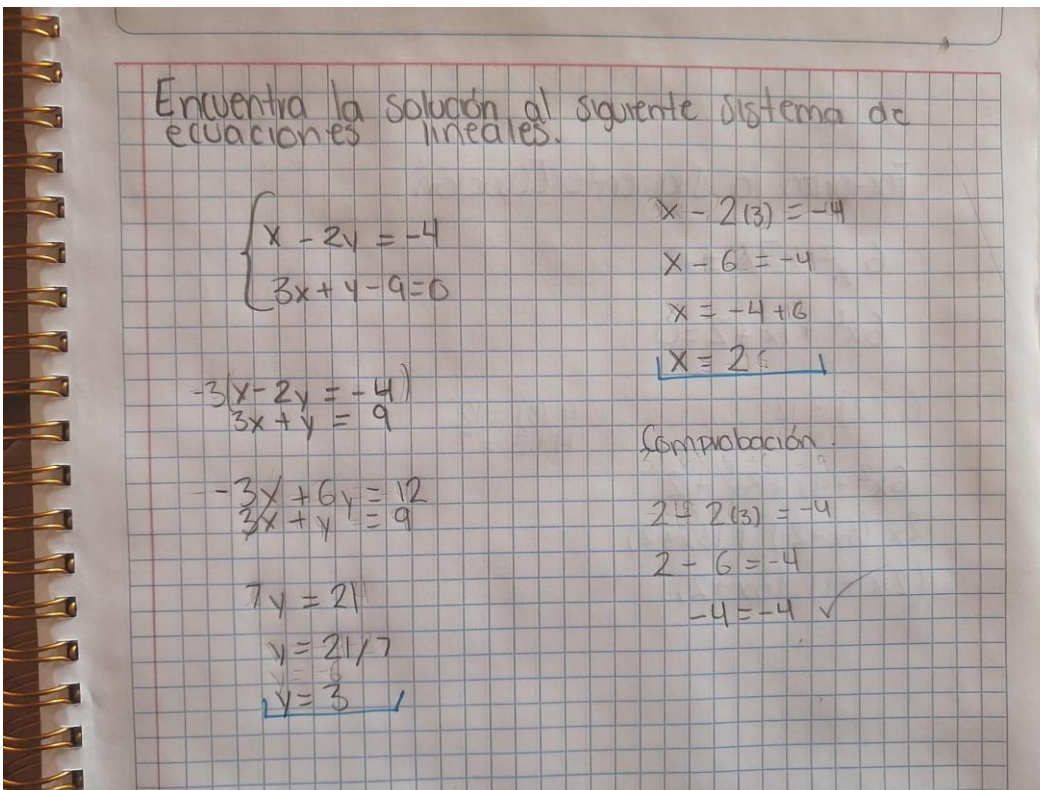 Encuentra la solución al siguiente sistema de
ecuaciones lineales.
x - 2y = -4
3x + y - 9 = 0
-3(x - 2y = -4)
3x + y = 9
-3x + 6y = 12
3x + y = 9
7y = 21
y = 21/7
y = 3
x - 2(3) = -4
x - 6 = -4
x = -4 + 6
x = 2
Comprobación.
2 - 2(3) = -4
2 - 6 = -4
-4 = -4 ✓